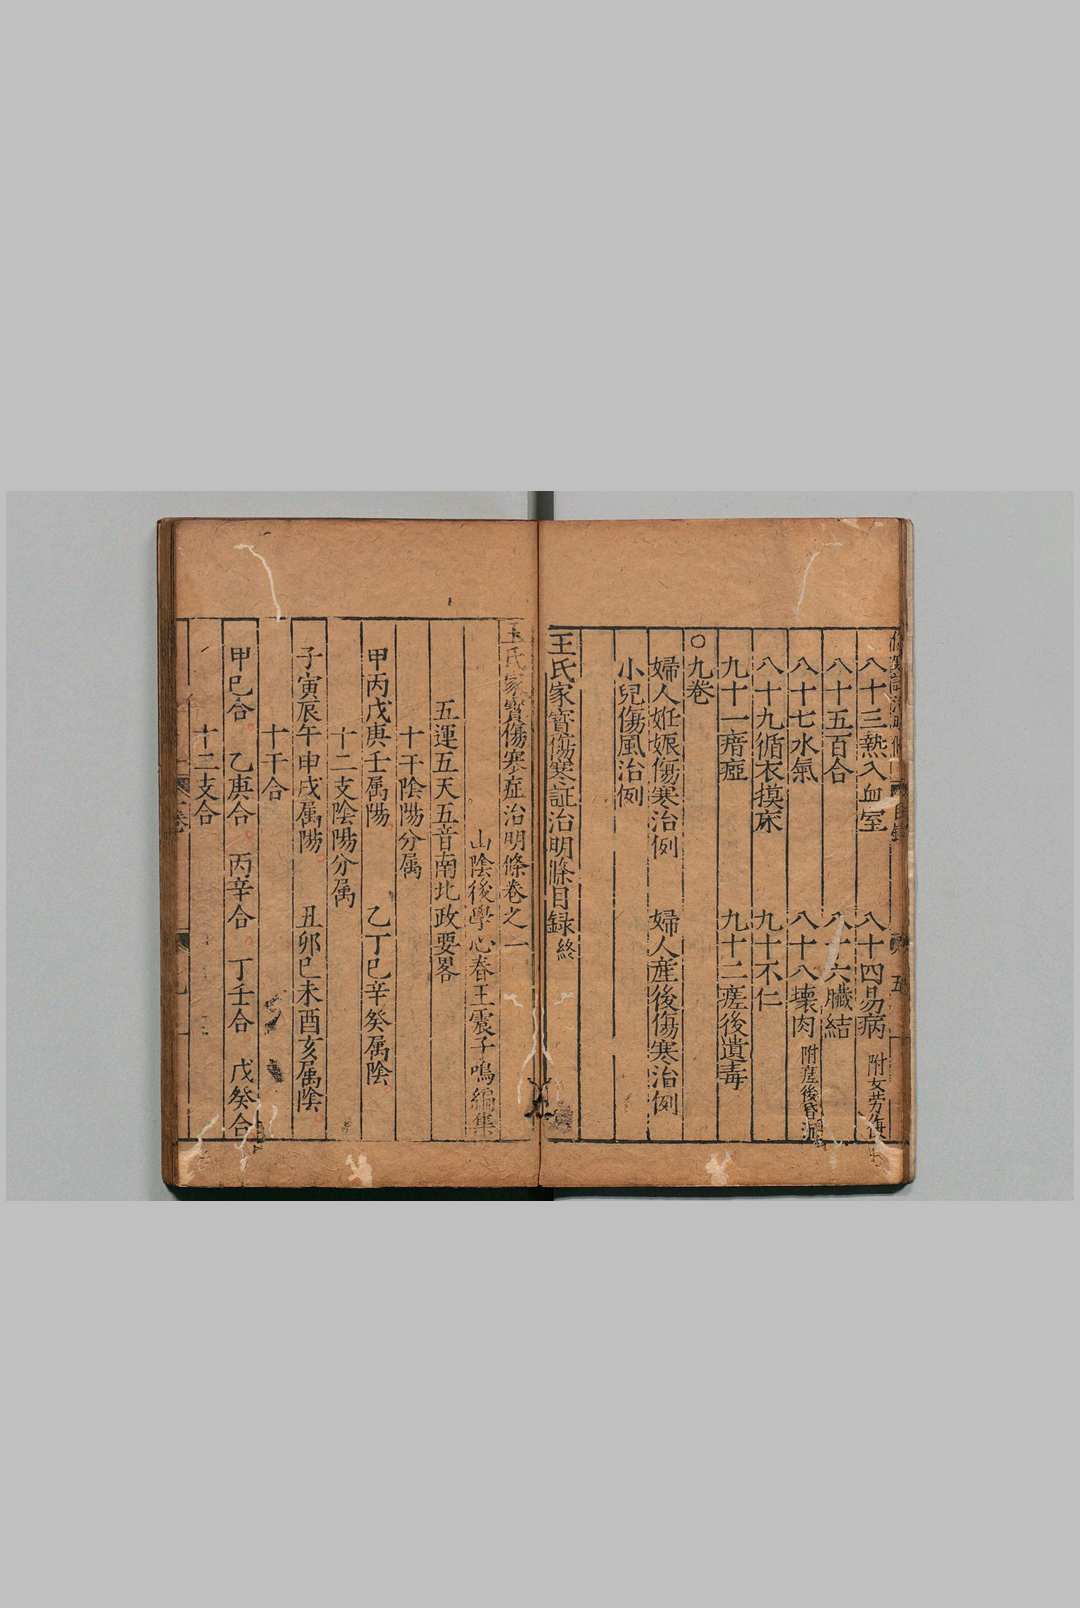 八十三熱入血室　八十四易病
八十五百合　八十六臟結
八十七水氣　八十八壞肉 附産後昏沉
八十九循衣摸床　九十不仁
九十一瘖瘂　九十二瘥後遺毒
○九卷
婦人姙娠傷寒治例　婦人產後傷寒治例
小兒傷風治例
王氏家寳傷寒証治明條目録終
王氏家寳傷寒症治明條卷之一
山陰後學心春王震子鳴編集
五運五天五音南北政要畧
十干陰陽分属
甲丙戊庚壬属陽　乙丁巳辛癸属陰
十二支陰陽分属
子寅辰午申戌属陽　丑卯巳未酉亥属陰
十干合
甲巳合　乙庚合　丙辛合　丁壬合　戊癸合
十二支合